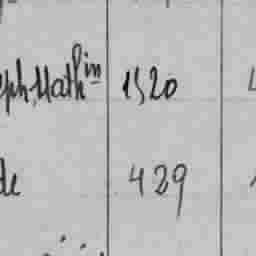 eph. Math in 1520
de 429